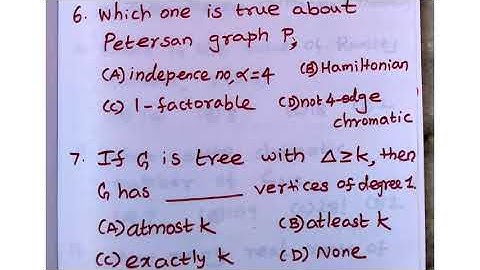 6. Which one is true about
Petersan graph P,
(A) indepence no, α=4 (B) Hamiltonian
(C) 1-factorable (D) not 4-edge
chromatic
7. If G is tree with Δ≥k, then
G has ______ vertices of degree 1
(A) atmost k (B) atleast k
(C) exactly k (D) None